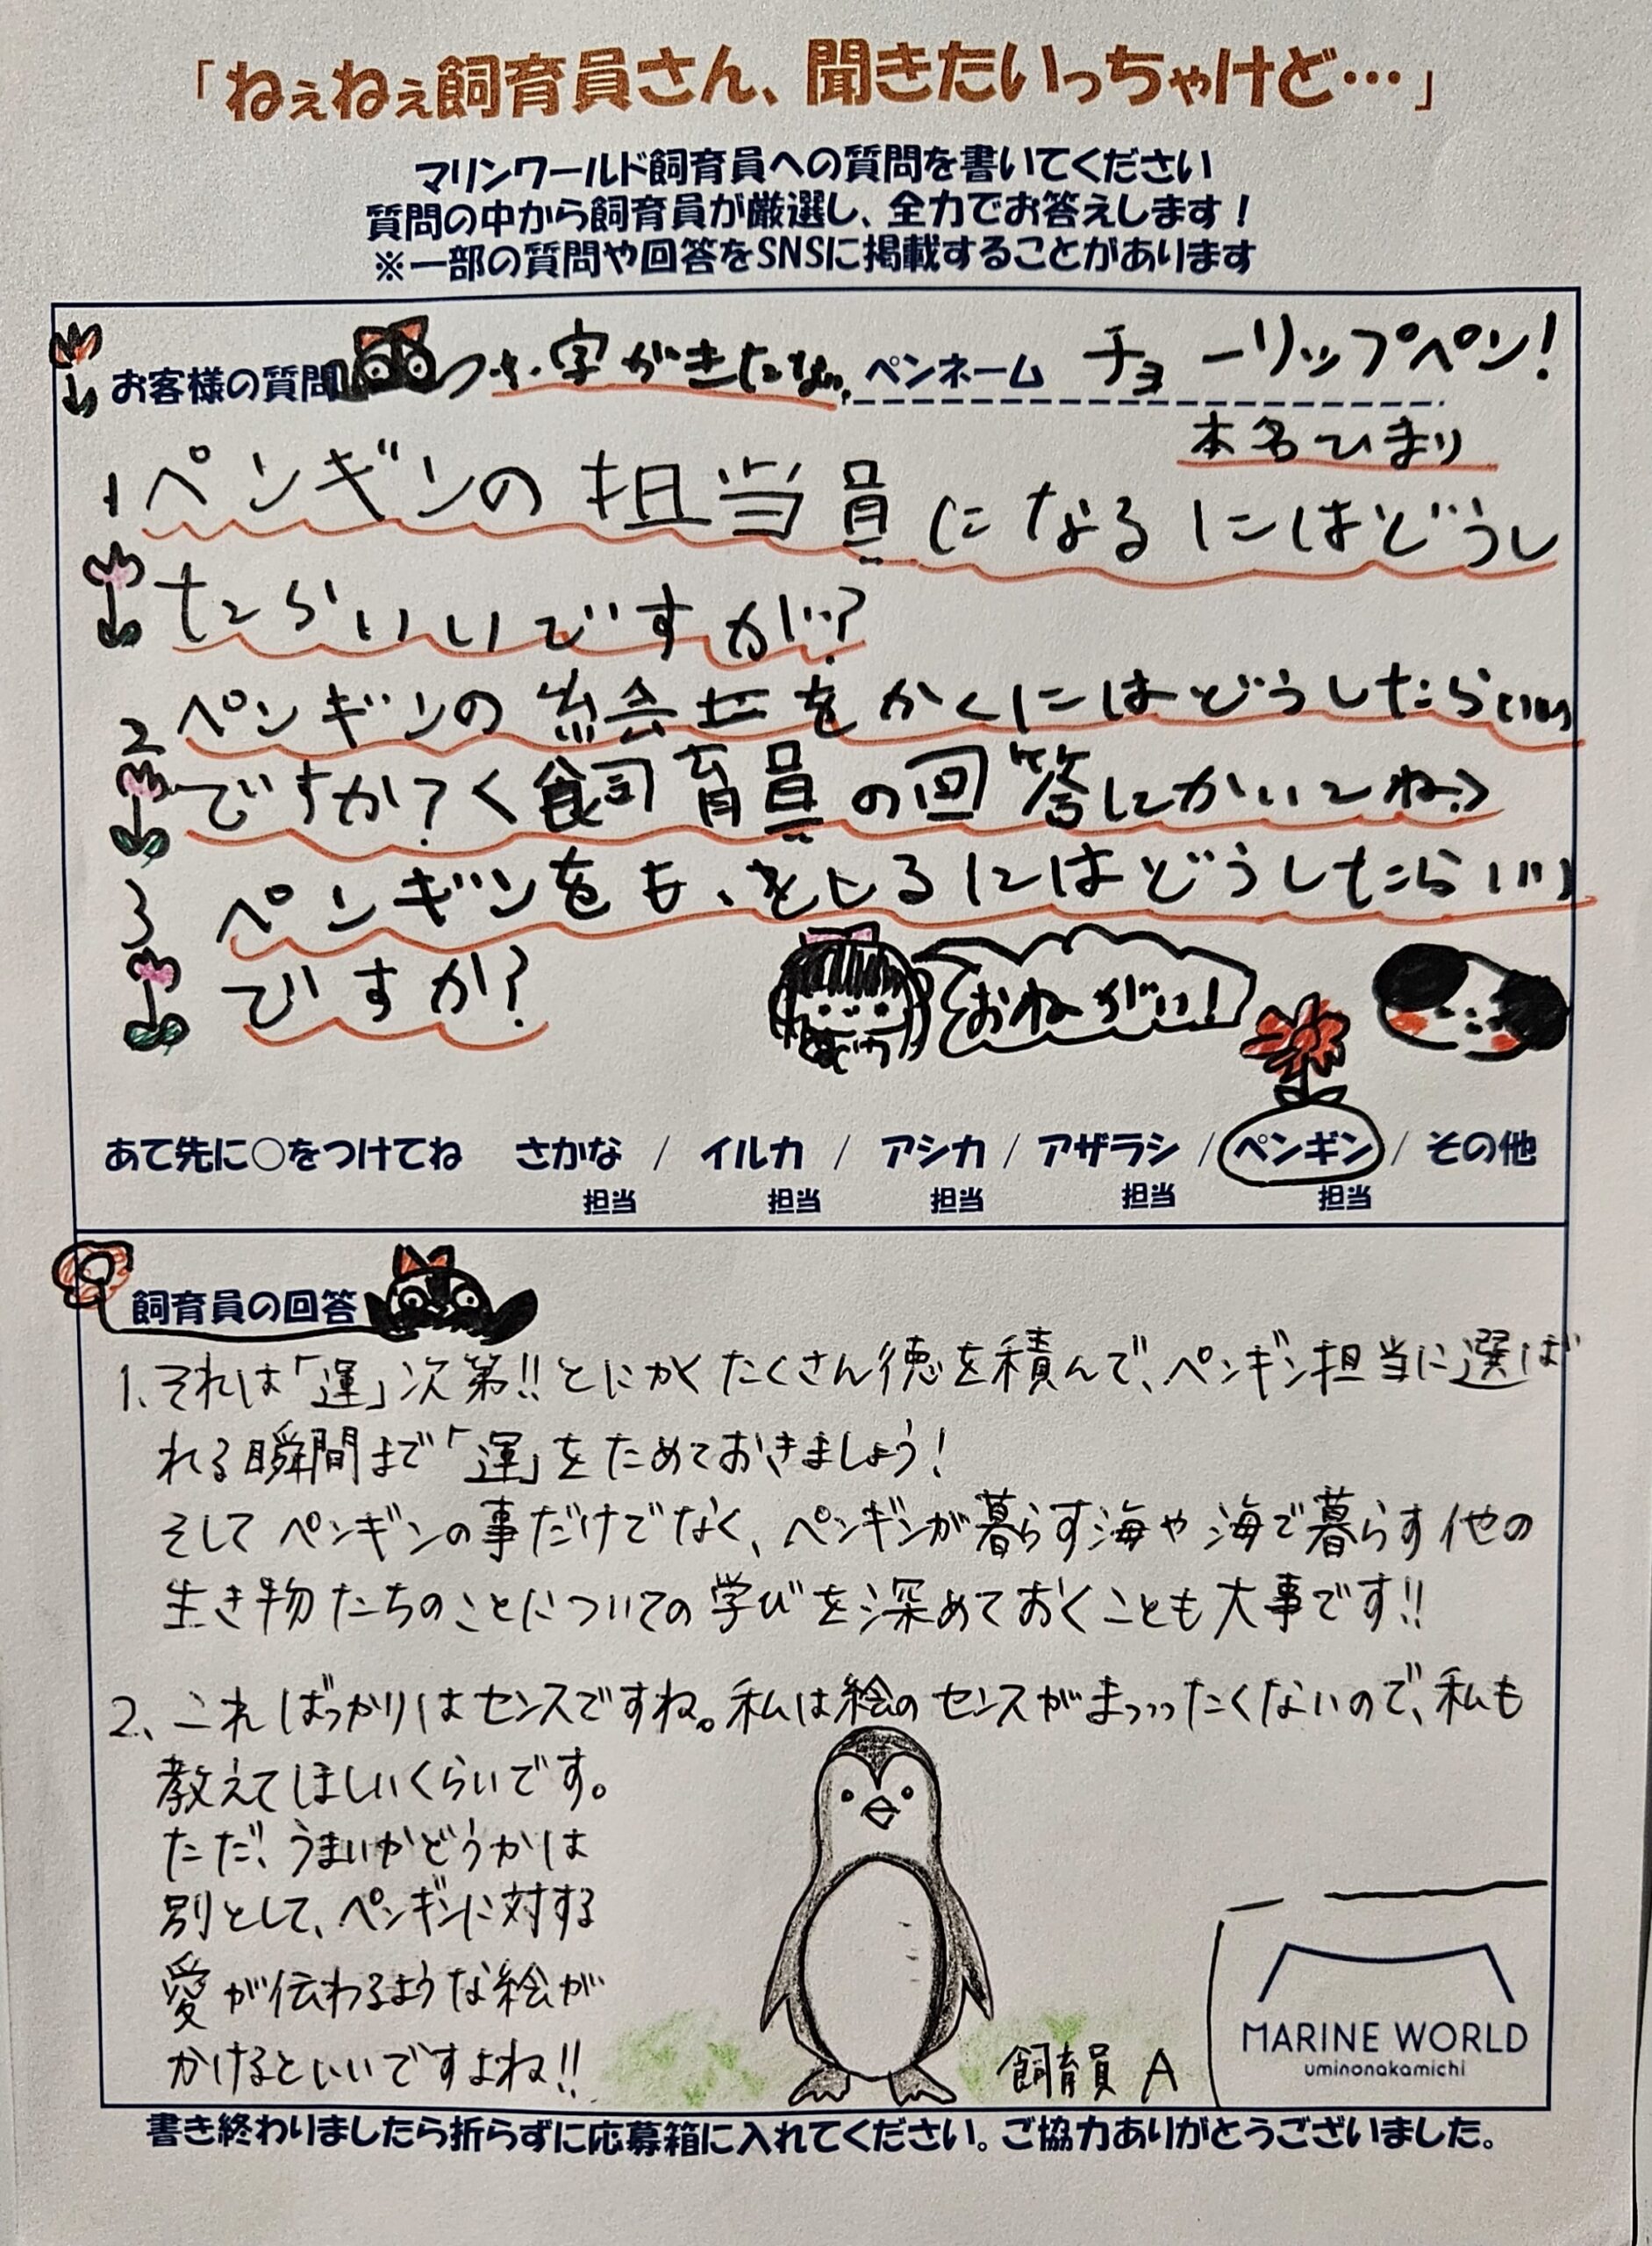 「ねぇねぇ飼育員さん、聞きたいっちゃけど…」
マリンワールド飼育員への質問を書いてください
質問の中から飼育員が厳選し、全力でお答えします！
※一部の質問や回答をSNSに掲載することがあります
お客様の質問 字がきたない ペンネーム チューリップペン！
本名ひまり
1 ペンギンの担当員になるにはどうし
たらいいですか？
2 ペンギンの絵 をかくにはどうしたらいい
ですか？＜飼育員の回答にかいてね＞
3 ペンギンを るにはどうしたらいい
ですか？
おねがい！
あて先に○をつけてね さかな / イルカ / アシカ / アザラシ / ペンギン / その他
担当 担当 担当 担当 担当
飼育員の回答
1、それは「運」次第!!とにかくたくさん徳を積んで、ペンギン担当に選ば
れる瞬間まで「運」をためておきましょう！
そしてペンギンの事だけでなく、ペンギンが暮らす海や海で暮らす他の
生き物たちのことについての学びを深めておくことも大事です!!
2、こればっかりはセンスですね。私は絵のセンスがまっったくないので、私も
教えてほしいくらいです。
ただ、うまいかどうかは
別として、ペンギンに対する
愛が伝わるような絵が
かけるといいですよね!!
飼育員 A
MARINE WORLD
uminonakamichi
書き終わりましたら折らずに応募箱に入れてください。ご協力ありがとうございました。